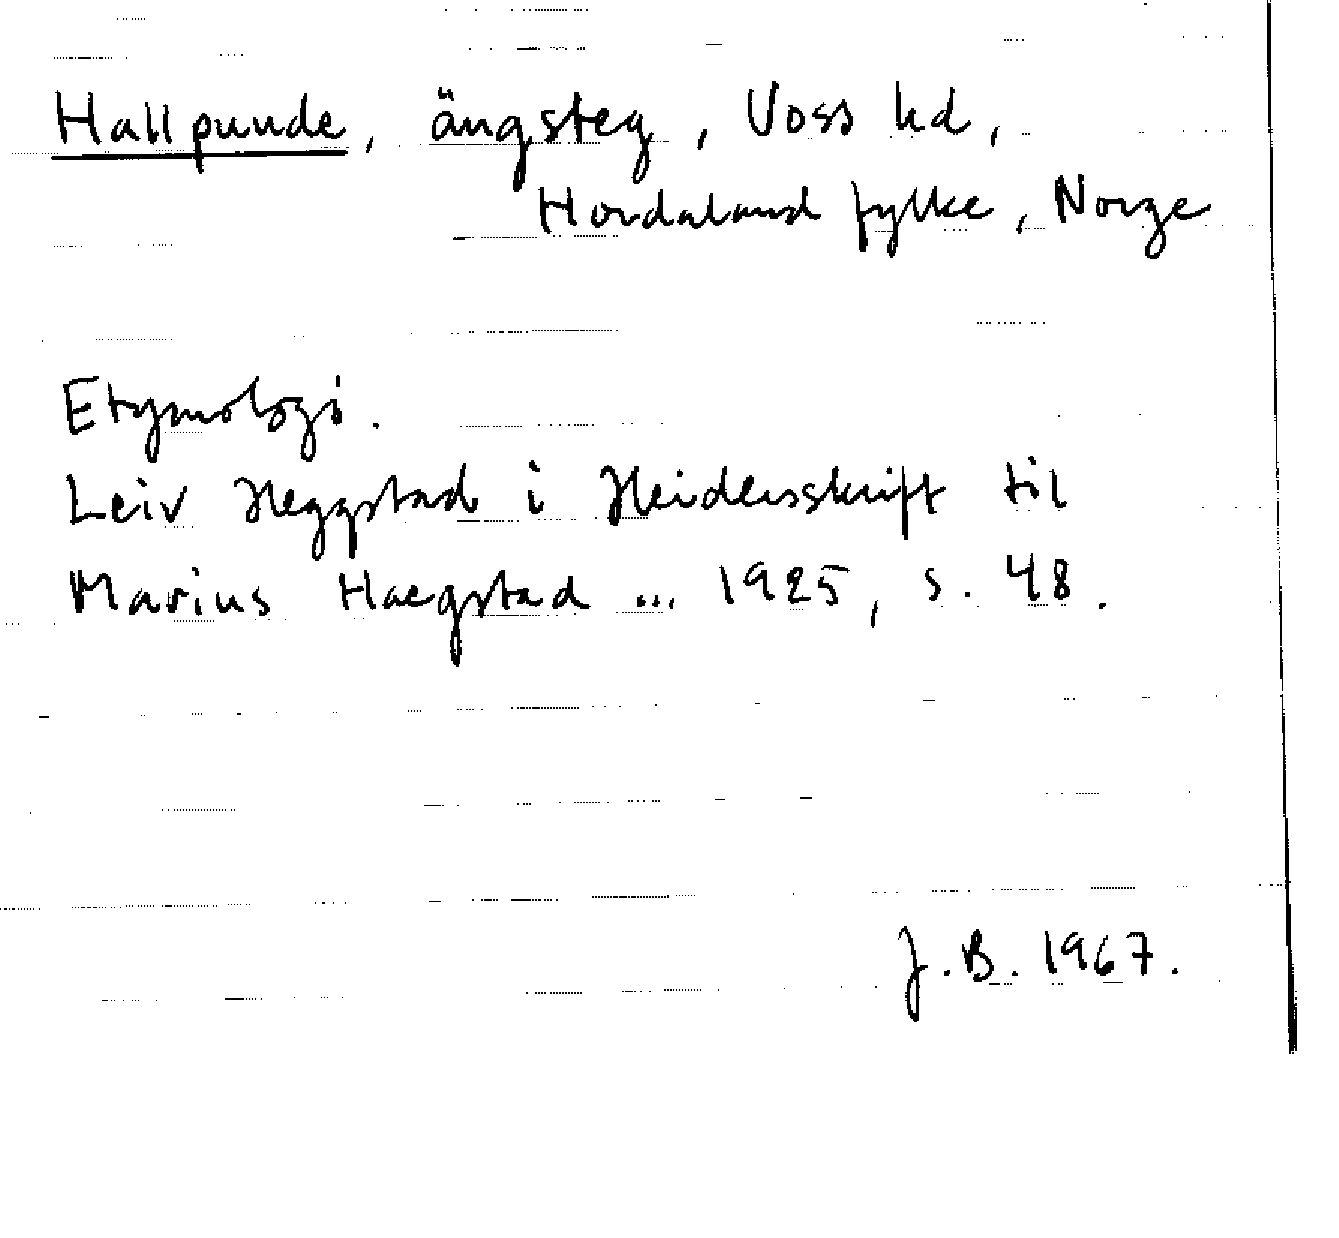 Hallpunde, ängsteg, Voss hd,
Hordaland fylke, Norge
Etymologi.
Leiv Heggstad i Heidersskrift til
Marius Haegstad ... 1925, s. 48.
J.B. 1967.